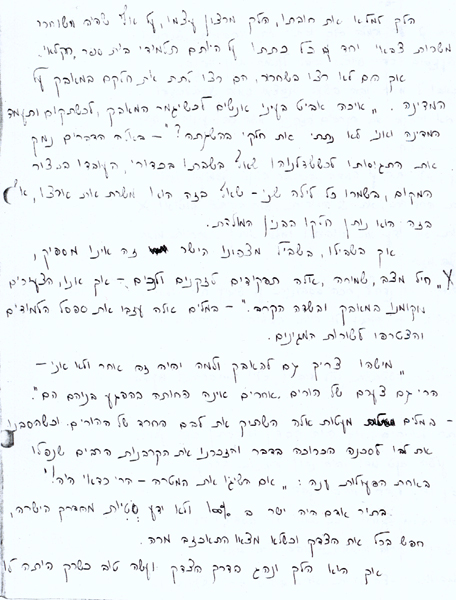 הלך למלא את חובתו, הלך מרצון עצמו, על אף שהיה משוחרר
משרות צבאי יחד עם כל כתתו על היותם תלמידי בית ספר חקלאי.
אך הם לא רצו בשחרור, הם רצו לתת את חלקם במאבק על
המדינה. "איכה אביט בעיני אנשים לכשיגמר המאבק, לכשתקום ותעמד
המדינה ואני לא נתתי את חלקי בהשגתה?" - באלה הדברים נמק
את התגיסותו לכשהסבירו שאף בשבתו בכדורי, העובדו בנצור
המקום, בשמרו כל לילה שני - שאף בזה הוא משרת את ארצו, אף
בזה הוא נותן חלקו בבנין המולדת.
אך בשבילו, בשביל מצפונו הישר זה אינו מספיק,
"חיל מצב, שמירה, אלה תפקידים לזקנים ולנכים - אך אנו, הצעירים
מקומנו במאבק ובשדה הקרב." - במלים אלה עזבו את ספסל הלמודים
והצטרפו לשורות המגינים.
"מישהו צריך גם להאבק ולמה יהיה זה אחר ולא אני -
הרי גם צערם של הורים אחרים אינה פחותה בהפגע בניהם הם".
- במלים מעטות אלה השתיק את לבם החרד של ההורים. וכשהסבנו
את לבו לסכנה הכרוכה בדבר והזכרנו את הקרבנות הרבים שנפלו
באחת הפעולות ענה: "אם השיגו את המטרה - הרי כדאי היה!"
בתור אדם היה ישר ב 100% ולא ידע סטיות מהדרך הישרה,
חפש בכל את הצדק וכשלא מצאו התאכזב מרה.
אך הוא הלך ונהג בדרך הצדק ועשה טוב כשרק היתה לו